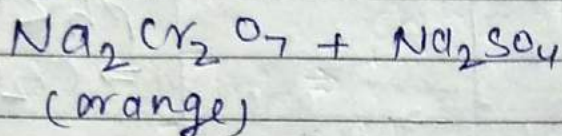 Na₂Cr₂O₇ + Na₂SO₄
(orange)